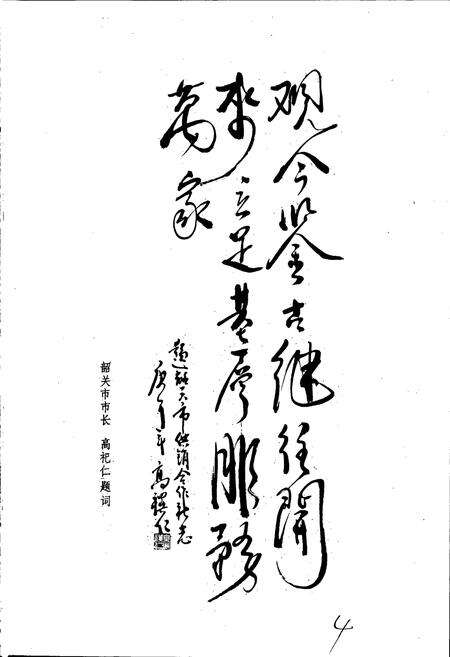 观今鉴古继往開
来立足基层服務
萬家
题韶关市供销合作社志
庚午年 高祀仁
韶关市市长 高祀仁题词
4